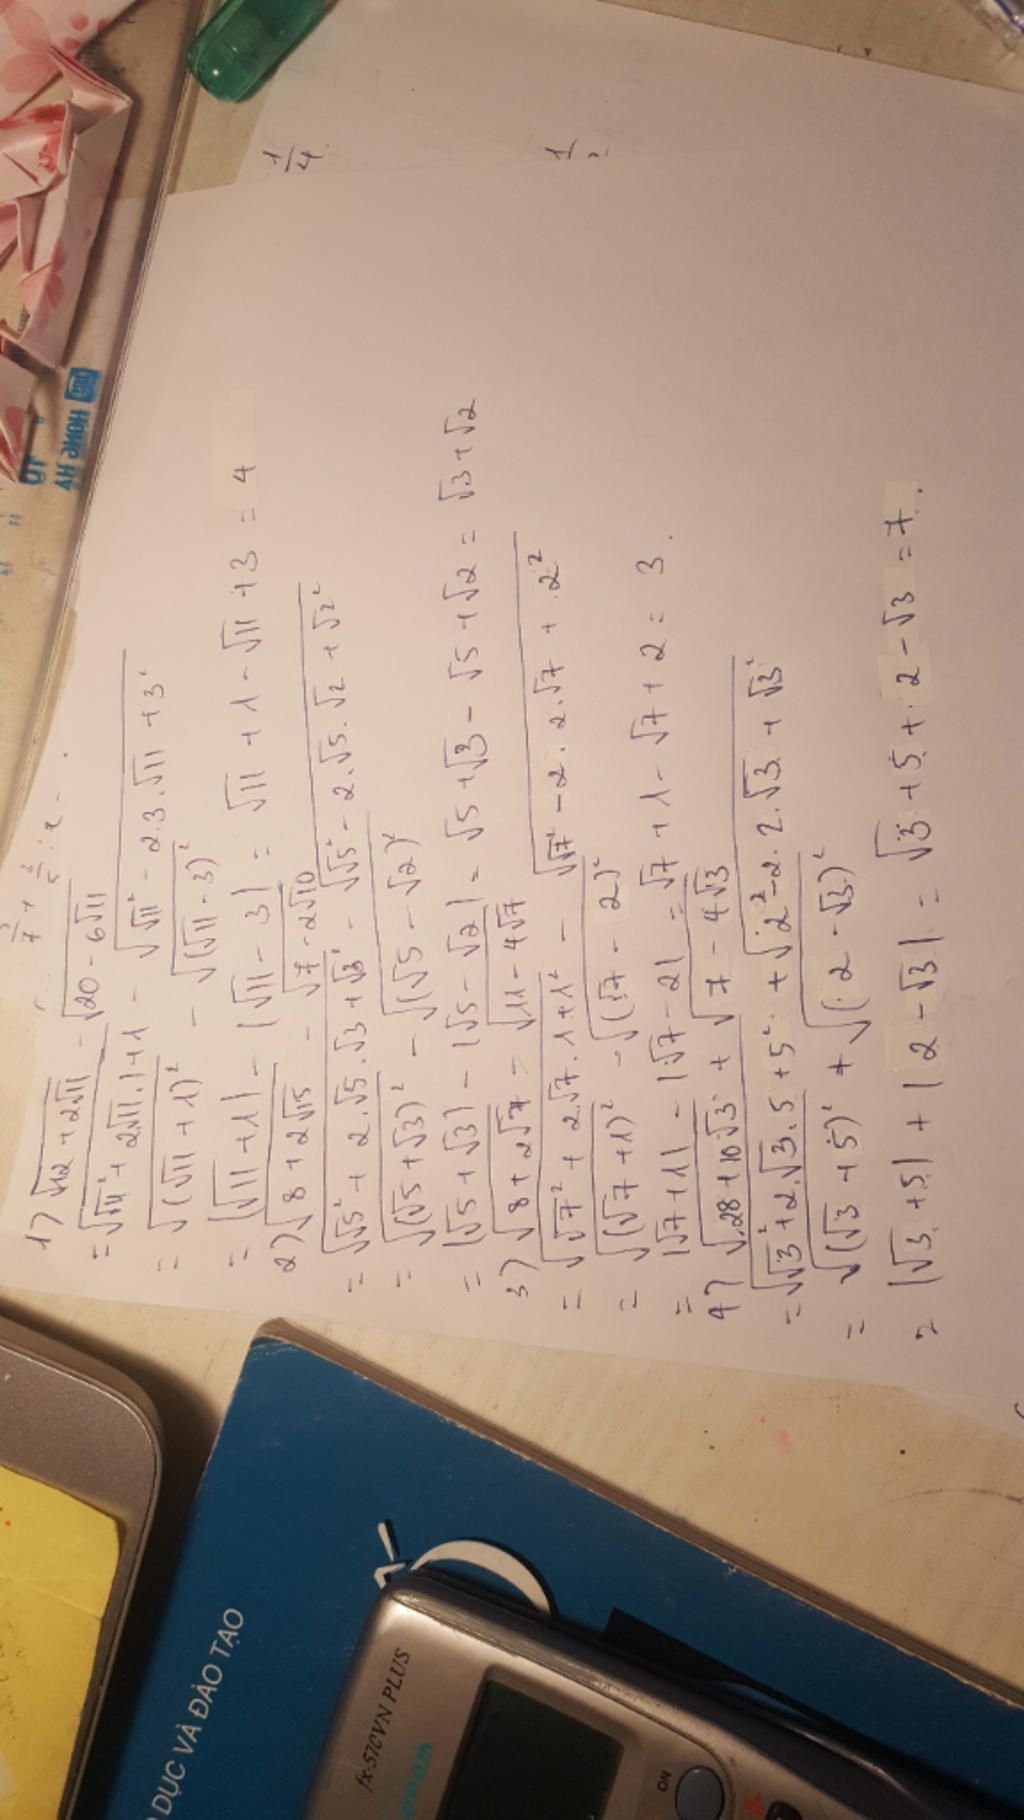 1) √12 + 2√11 - √20 - 6√11
= √√11² + 2√11.1 + 1 - √√11² - 2.3.√11 + 3²
= √(√11 + 1)² - √(√11 - 3)²
= |√11 + 1| - |√11 - 3| = √11 + 1 - √11 + 3 = 4
2) √8 + 2√15 - √7 - 2√10
= √√5² + 2.√5.√3 + √3² - √√5² - 2.√5.√2 + √2²
= √(√5 + √3)² - √(√5 - √2)²
= |√5 + √3| - |√5 - √2| = √5 + √3 - √5 + √2 = √3 + √2
3) √8 + 2√7 - √11 - 4√7
= √√7² + 2.√7.1 + 1² - √√7² - 2.2.√7 + 2²
= √(√7 + 1)² - √(√7 - 2)²
= |√7 + 1| - |√7 - 2| = √7 + 1 - √7 + 2 = 3.
4) √28 + 10√3 + √7 - 4√3
= √√3² + 2.√3.5 + 5² + √2² - 2.2.√3 + √3²
= √(√3 + 5)² + √(2 - √3)²
= |√3 + 5| + |2 - √3| = √3 + 5 + 2 - √3 = 7.
1/4
DỤC VÀ ĐÀO TẠO
fx-570VN PLUS
ON